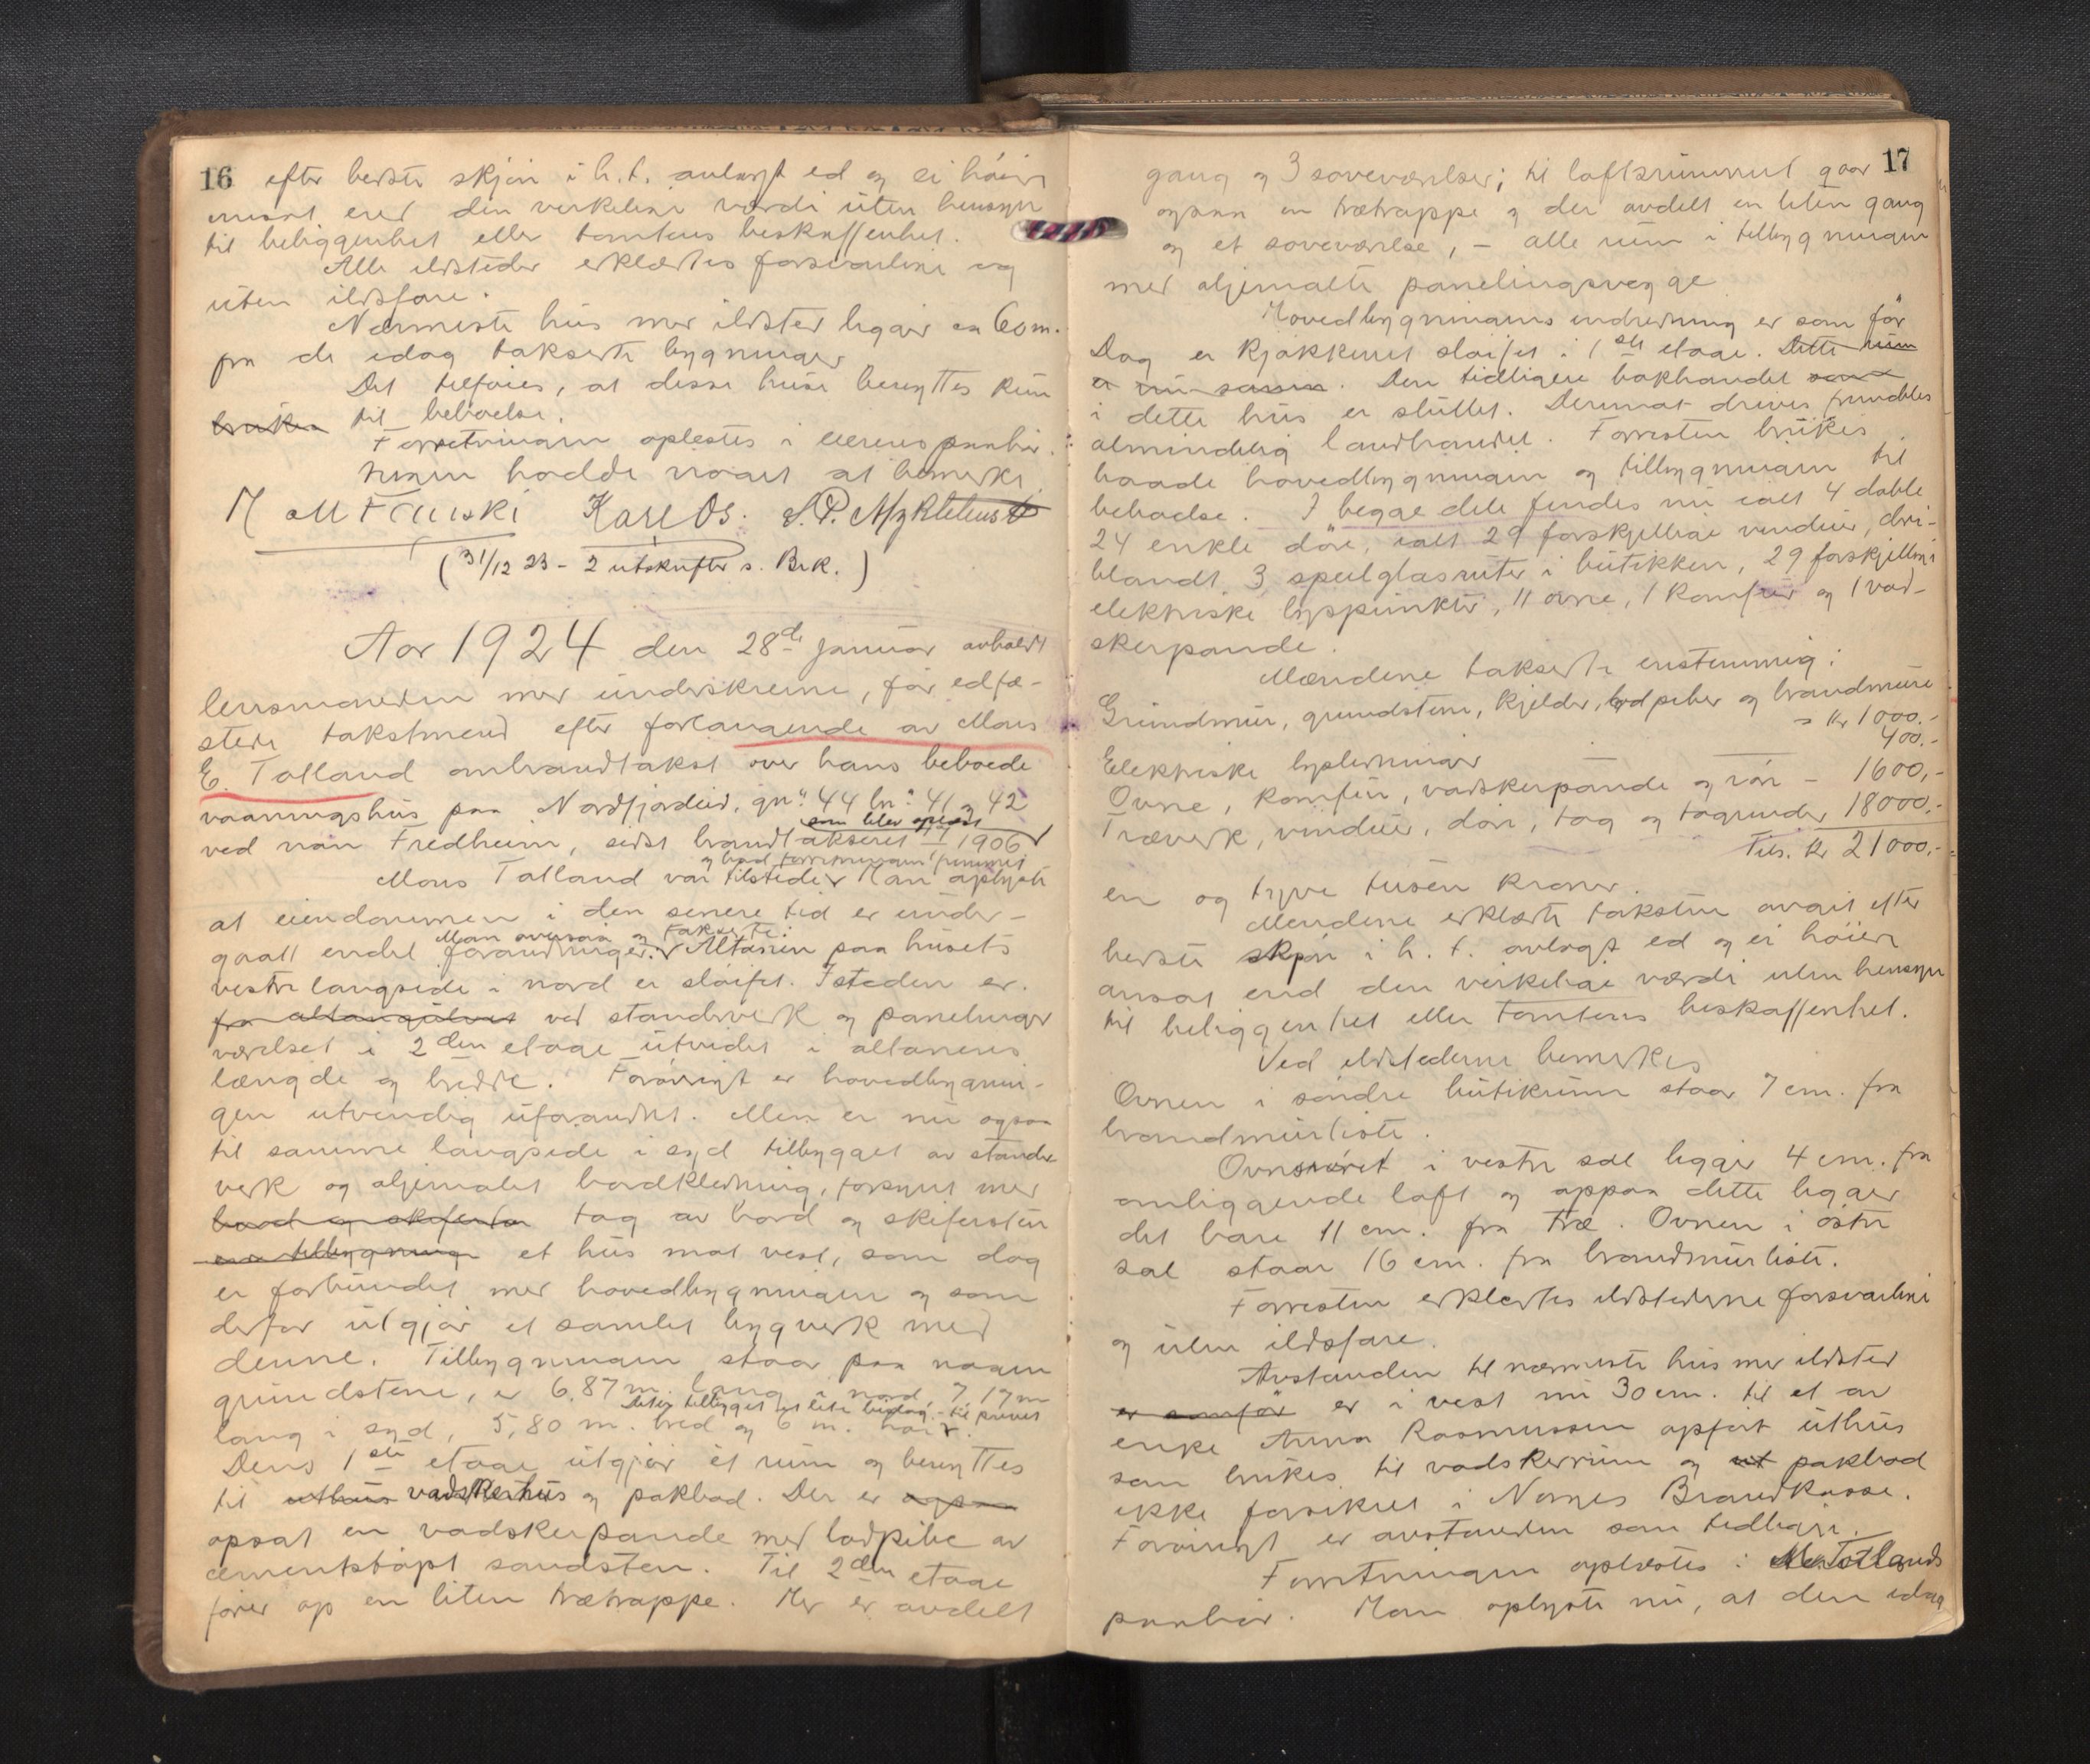 16
efter beste skjøn i h. t. avlagt ed og ei høier
ansat end den virkelige værdi uten hensyn
til beliggenhet eller tomtens beskaffenhet.
Alle ildsteder erklærtes forsvarlige og
uten ildsfare.
Nærmeste hus med ildsted ligger ca 60 m.
fra de idag takserte bygninger
Det tilføies, at disse huse benyttes kun
bruken til beboelse.
Forretningen oplæstes i eierens paahør.
Ingen hadde noget at bemerke
Karl Os. S. P. Myklebust
(31/12 23 - 2 utskrifter s. Brk.)
Aar 1924 den 28de januar avholdt
lensmanden med underskrevne, før edfæ-
stede takstmænd efter forlangende av Mons
E. Totland ombrandtakst over hans beboede
vaaningshus paa Nordfjordeid, gn: 44 bn: 41 og 42
som blev oplæst
ved navn Fredheim, sidst brandtaksert 1906
og bad forretningen fremmet
Mons Totland var tilstede Han oplyste
at eiendommen i den senere tid er under-
Man oversaa og takserte:
gaatt endel forandringer. Altanen paa husets
vestre langside i nord er sløifet. Isteden er
fra altangulvet ved standverk og panelinger
værelset i 2den etage utvidet i altanens
længde og bredde. Forøvrigt er hovedbygnin-
gen utvendig uforandret. Men er nu ogsaa
til samme langside i syd tilbygget av stand-
verk og oljemalet bordklædning, forsynt med
bord og skifersten tag av bord og skifersten
en tilbygning et hus mot vest, som dog
er forbundet med hovedbygningen og som
derfor utgjør et samlet bygverk med
denne. Tilbygningen staar paa nogen
grundstene, er 6.87 m. lang i nord, 7,17 m
lang i syd, 5,80 m. bred og 6 m. høi.
Dens 1ste etage utgjør et rum og benyttes
til uthus vadskerhus og pakbod. Der er ogsaa
opsat en vadskerpande med lodpibe av
cementstøpt sandsten. Til 2den etage
fører op en liten trætrappe. Her er avdelt
17
gang og 3 soveværelser; til loftsrummet gaar
ogsaa en trætrappe og der avdelt en liten gang
og et soveværelse, - alle rum i tilbygningen
med oljemalte panelingsvægge
Hovedbygningens indredning er som før
Dog er kjøkkenet sløifet i 1ste etage. Dette rum
er nu sammen. Den tidligere bokhandel som
i dette hus er sluttet. Derimot drives fremdeles
almindelig landhandel. Forresten brukes
baade hovedbygningen og tilbygningen til
beboelse. I begge dele findes nu ialt 4 doble
24 enkle døre, ialt 29 forskjellige vinduer, dri-
blandt 3 speilglasruter i butikken, 29 forskjellige
elektriske lyspunkter, 11 ovne, 1 komfur og 1 vad-
skerpande.
Mændene takserte enstemmig:
Grundmur, grundstene, kjelder, lodpiber og brandmure
= Kr 1000.-
Elektriske lysledninger 400.-
Ovne, komfur, vadskerpande og rør - 1600,-
Træverk, vinduer, døre, tag og tagrender 18000.-
Tils. Kr 21000,-
en og tyve tusen kroner.
Mændene erklærte taksten avgit efter
beste skjøn i h. t. avlagt ed og ei høiere
ansat end den virkelige værdi uten hensyn
til beliggenhet eller tomtens beskaffenhet.
Ved ildstederne bemerkes
Ovnen i søndre butikrum staar 7 cm. fra
brandmurliste.
Ovnsrøret i vestre sal ligger 4 cm. fra
omliggende loft og oppaa dette ligger
det bare 11 cm. fra træ. Ovnen i østre
sal staar 16 cm. fra brandmurliste.
Forresten erklærtes ildstederne forsvarlige
og uten ildsfare.
Avstanden til nærmeste hus med ildsted
er som før er i vest nu 30 cm. til et av
enke Anna Rasmussen opført uthus
som brukes til vadskerrum og ut pakbod
ikke forsikret i Norges Brandkasse.
Forøvrigt er avstanden som tidligere.
Forretningen oplæstes i M. Totlands
paahør. Han oplyste nu, at den idag